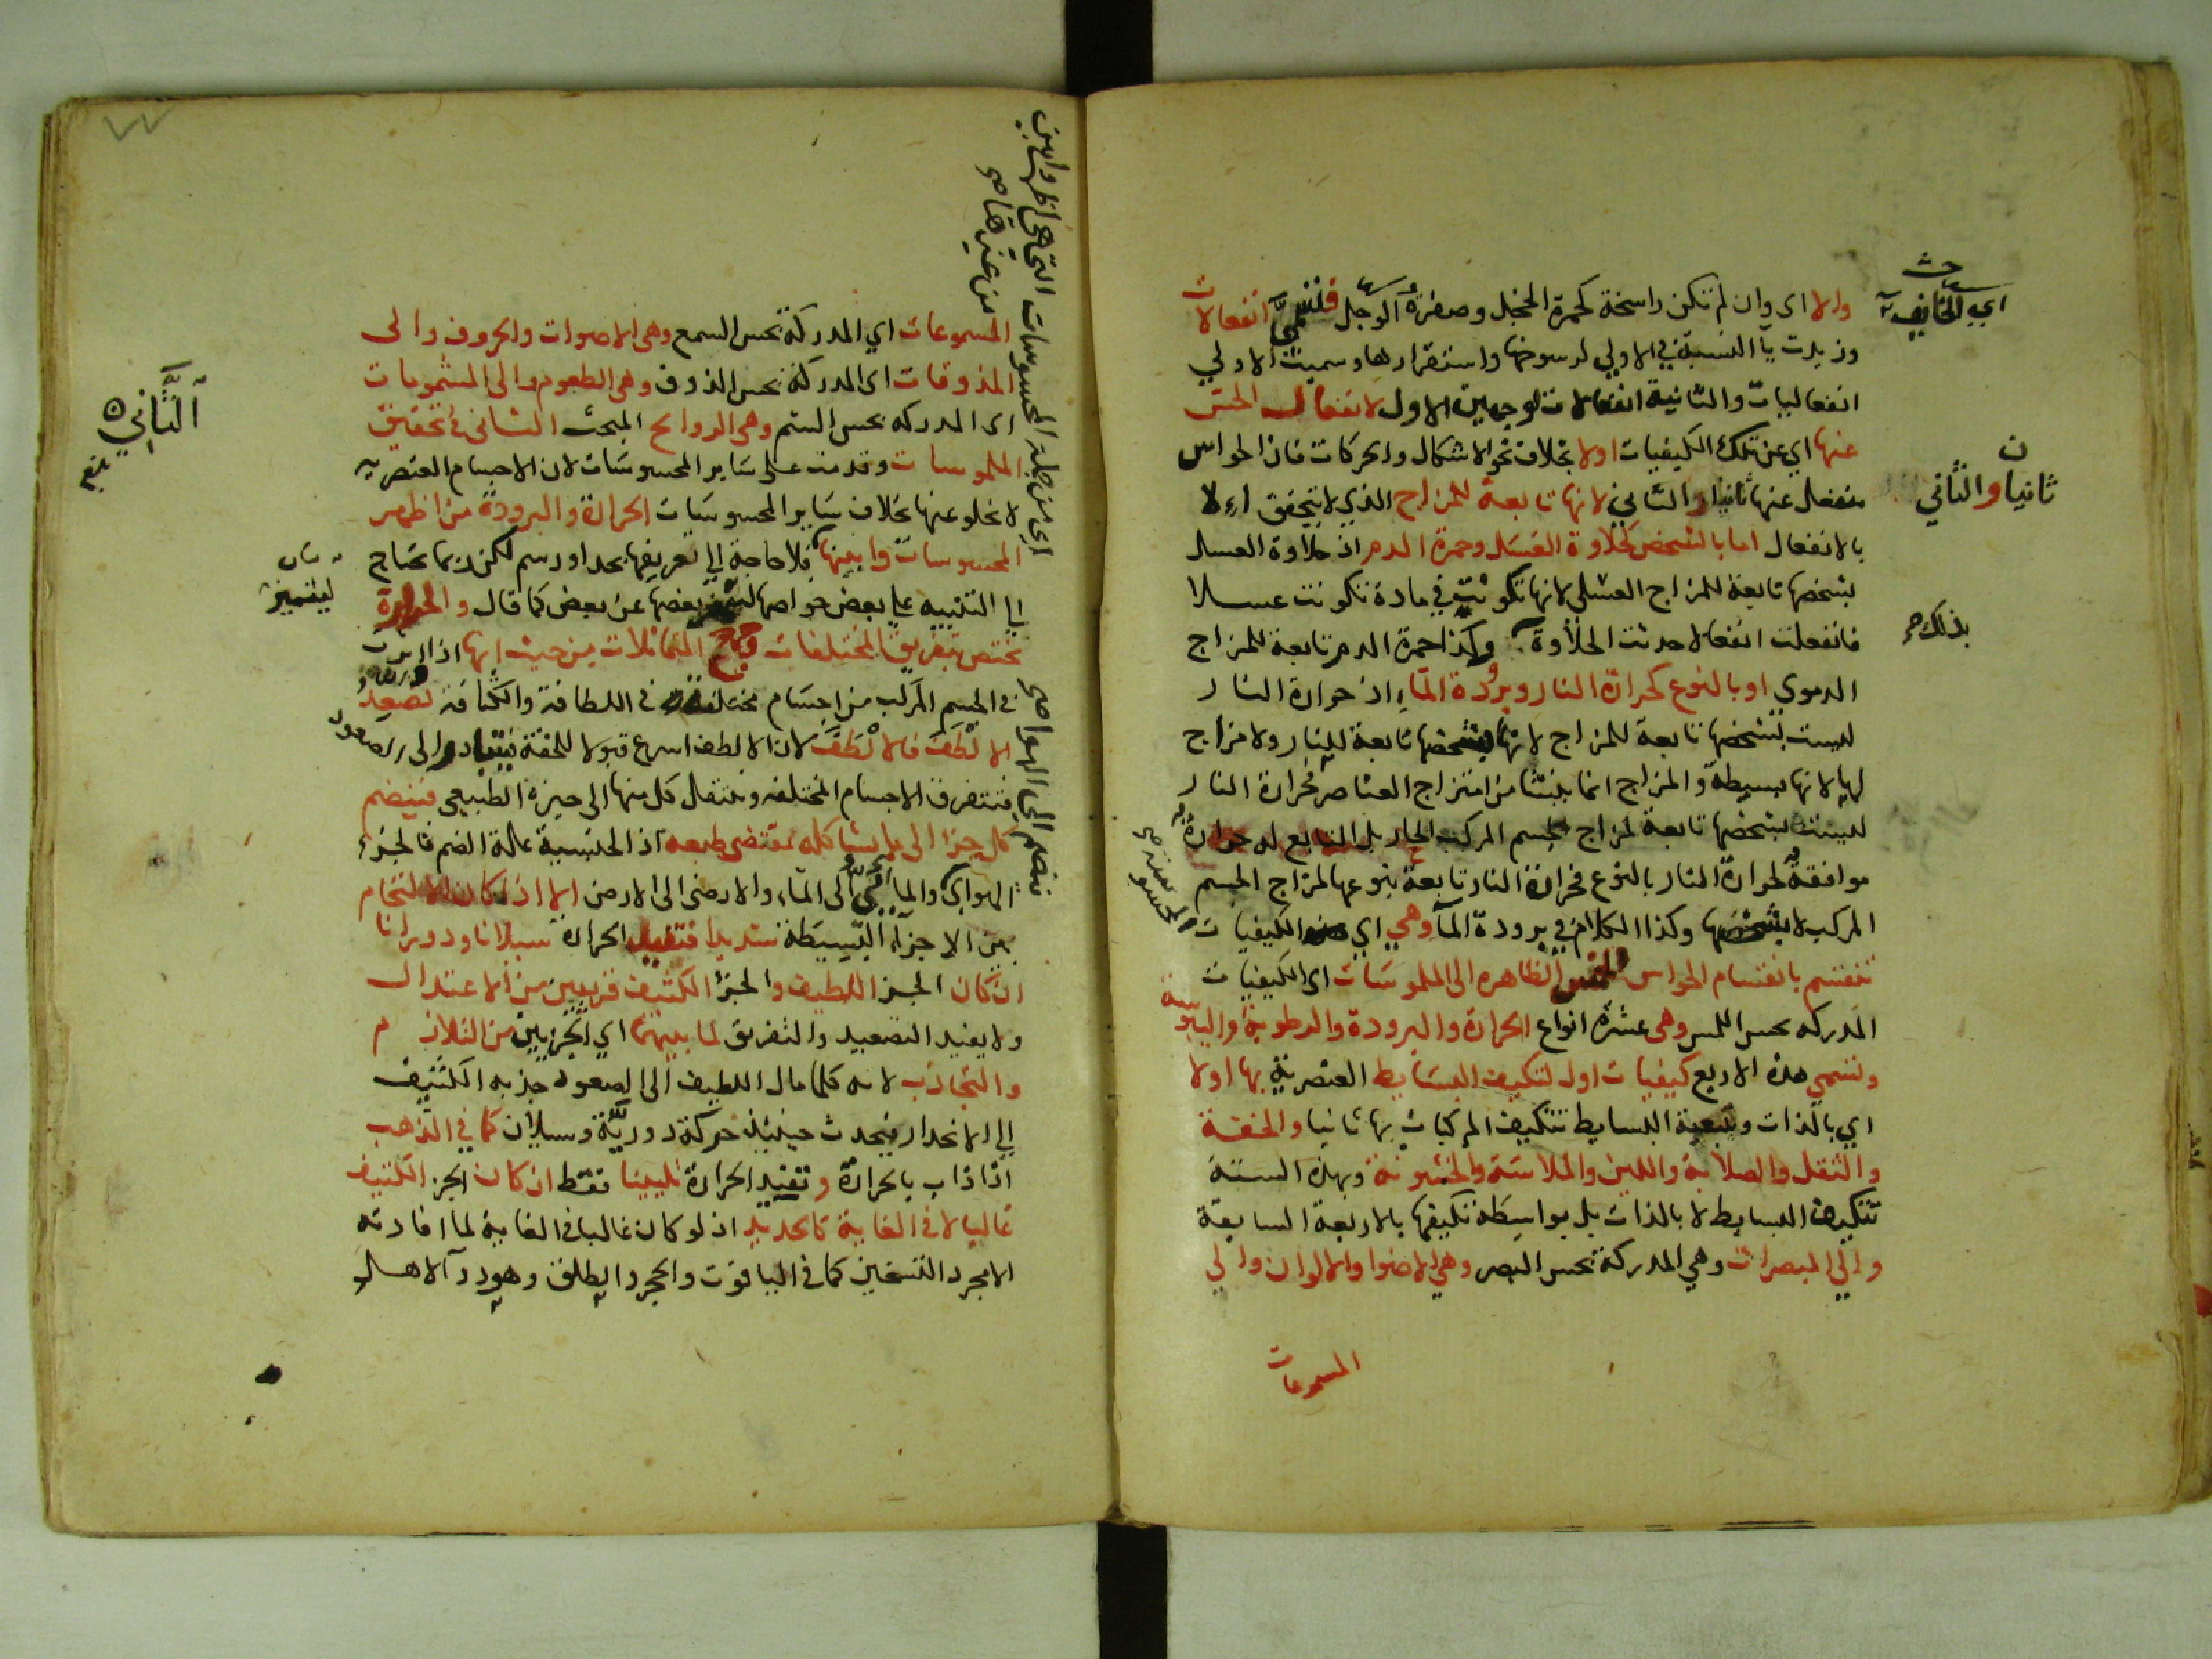 والا اى وان لم تكن راسخة كحمرة الخجل وصفرة الوجل فتسمى انفعالات
وزيدت يآ النسبة في الاولي لرسوخها واستقرارها وسميت الاولي
انفعاليات والثانية انفعالات لوجهين الاول لانفعال الحس
عنها اي عن تلك الكيفيات اولا بخلاف نحو الاشكال والحركات فان الحواس
منفعل عنها ثانيا والثاني لانها تابعة للمزاج الذي لا يتحقق الا
بالانفعال اما بالشخص كحلاوة العسل وحمرة الدم اذ حلاوة العسل
بشخصها تابعة للمزاج العسلى لانها تكونت في مادة تكونت عسلا
فانفعلت انفعالا حدثت الحلاوة وكذا حمرة الدم تابعة للمزاج
الدموي او بالنوع كحرارة النار وبرودة المآء اذ حرارة النار
ليست بشخصها تابعة للمزاج لانها بشخصها تابعة للنار ولا مزاج
لها لانها بسيطة والمزاج انما ينشا من امتزاج العناصر فحرارة النار
ليست بشخصها تابعة لمزاج الجسم المركب الحار بل التابع له حرارة
موافقة لحرارة النار بالنوع فحرارة النار تابعة بنوعها لمزاج الجسم
المركب لا بشخصها وكذا الكلام في برودة المآ وهي اي الكيفيات
تنقسم بانقسام الحواس الخمس الظاهره الى الملموسات اى الكيفيات
المدركه بحس اللمس وهى عشرة انواع الحرارة والبرودة والرطوبة واليبوسة
وتسمي هذه الاربع كيفيات اول لتكيف البسايط العنصرية بها اولا
اي بالذات وبتبعية البسايط تتكيف المركبات بها ثانيا والخفة
والثقل والصلابة واللين والملاسة والخشونة وبهذه الستة
تتكيف البسايط لا بالذات بل بواسطة تكيفها بالاربعة السابعة
والى المبصرات وهي المدركة بحس البصر وهي الاضوا والالوان والي
المسموعات
ثانيا والثاني
بذلك صح
المسموعات اي المدركة بحس السمع وهى الاصوات والحروف والى
المذوقات اى المدركة بحس الذوق وهى الطعوم والى المشمومات
اى المدركه بحس الشم وهى الروايح المبحث الثانى في تحقيق
الملموسات وقدمت على ساير المحسوسات لان الاجسام العنصريه
لا تخلو عنها بخلاف ساير المحسوسات الحرارة والبرودة من اظهر
المحسوسات وابينها فلا حاجة الي تعريفها بحد او رسم لكن ربما تحتاج
الي التنبيه علي بعض خواصها ليتميز بعضها عن بعض كما قال والحرارة
تختص بتفريق المختلفات وجمع المتماثلات من حيث انها اذا اثرت
في الجسم المركب من اجسام مختلفة في اللطافة والكثافة تصعد
الالطف فالالطف لان الالطف اسرع قبولا للخفة فيتبادر الى الصعود
فتتفرق الاجسام المختلفه وينتقل كل منها الى حيزه الطبيعى فينضم
كل جزء الى ما يشاكله بمقتضى طبعه اذ الجنسية علة الضم فالجزء
الهوائي والمائي الى المآء والارضى الى الارض الا اذا كان الالتحام
بين الاجزآء البسيطة شديدا فتفيد الحرارة سيلانا ودورانا
ان كان الجز اللطيف والجزء الكثيف قريبين من الاعتدال
ولا يفيد التصعيد والتفريق لما بينهما اي الجزيين من التلازم
والتجاذب لانه كلما مال اللطيف الى الصعود جذبه الكثيف
الي الانحدار فيحدث حينئذ حركة دورية وسيلان كما في الذهب
اذا ذاب بالحرارة وتفيد الحرارة تليينا فقط ان كان الجز الكثيف
غالبا لا في الغاية كالحديد اذ لو كان غالبا في الغاية لما افادته
الا مجرد التسخين كما في الياقوت والحجر والطلق وهو دآ لاهل
اي من جملة المحسوسات التى هى اظهر وابين
من غيرها صح
ينضم الى الهوا صح
الثاني
ليتميز